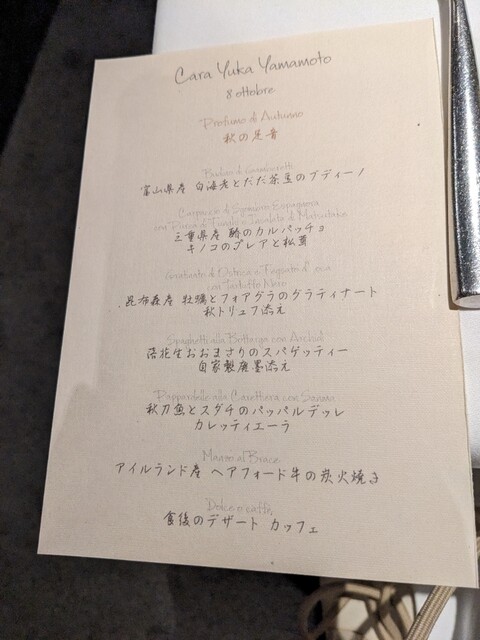 Cara Yuka Yamamoto
8 ottobre
Profumo di Autunno
秋の足音
Budino di Gamberetti
富山県産 白海老とだだ茶豆のブディーノ
Carpaccio di Sgombro Spagnolo
三重県産 鰆のカルパッチョ
キノコのプレアと松茸
con Tartufo Nero
昆布森産 牡蠣とフォアグラのグラティナート
秋トリュフ添え
Spaghetti alla Bottarga con Arachidi
落花生おおまさりのスパゲッティー
自家製唐墨添え
Pappardelle alla Carettiera con Sanma
秋刀魚とスダチのパッパルデッレ
カレッティエーラ
Manzo al Brace
アイルランド産 ヘアフォード牛の炭火焼き
Dolce e caffè
食後のデザート カッフェ